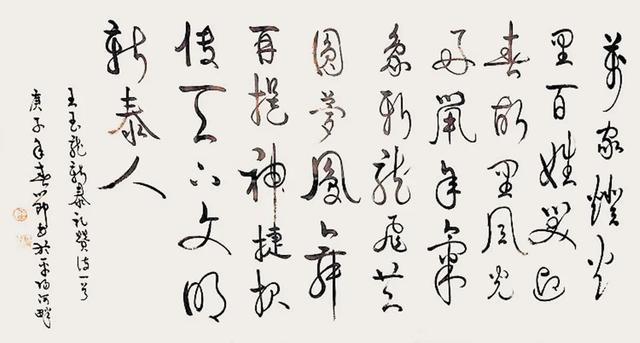 萬家燈火
里百姓笑迎
春故里風光
好鼠年氣
象新龍飛共
圓夢鳳舞
再提神捷报
傳天下文明
新泰人
王玉龍新泰礼贊詩一首
庚子年春節書於平陽河畔